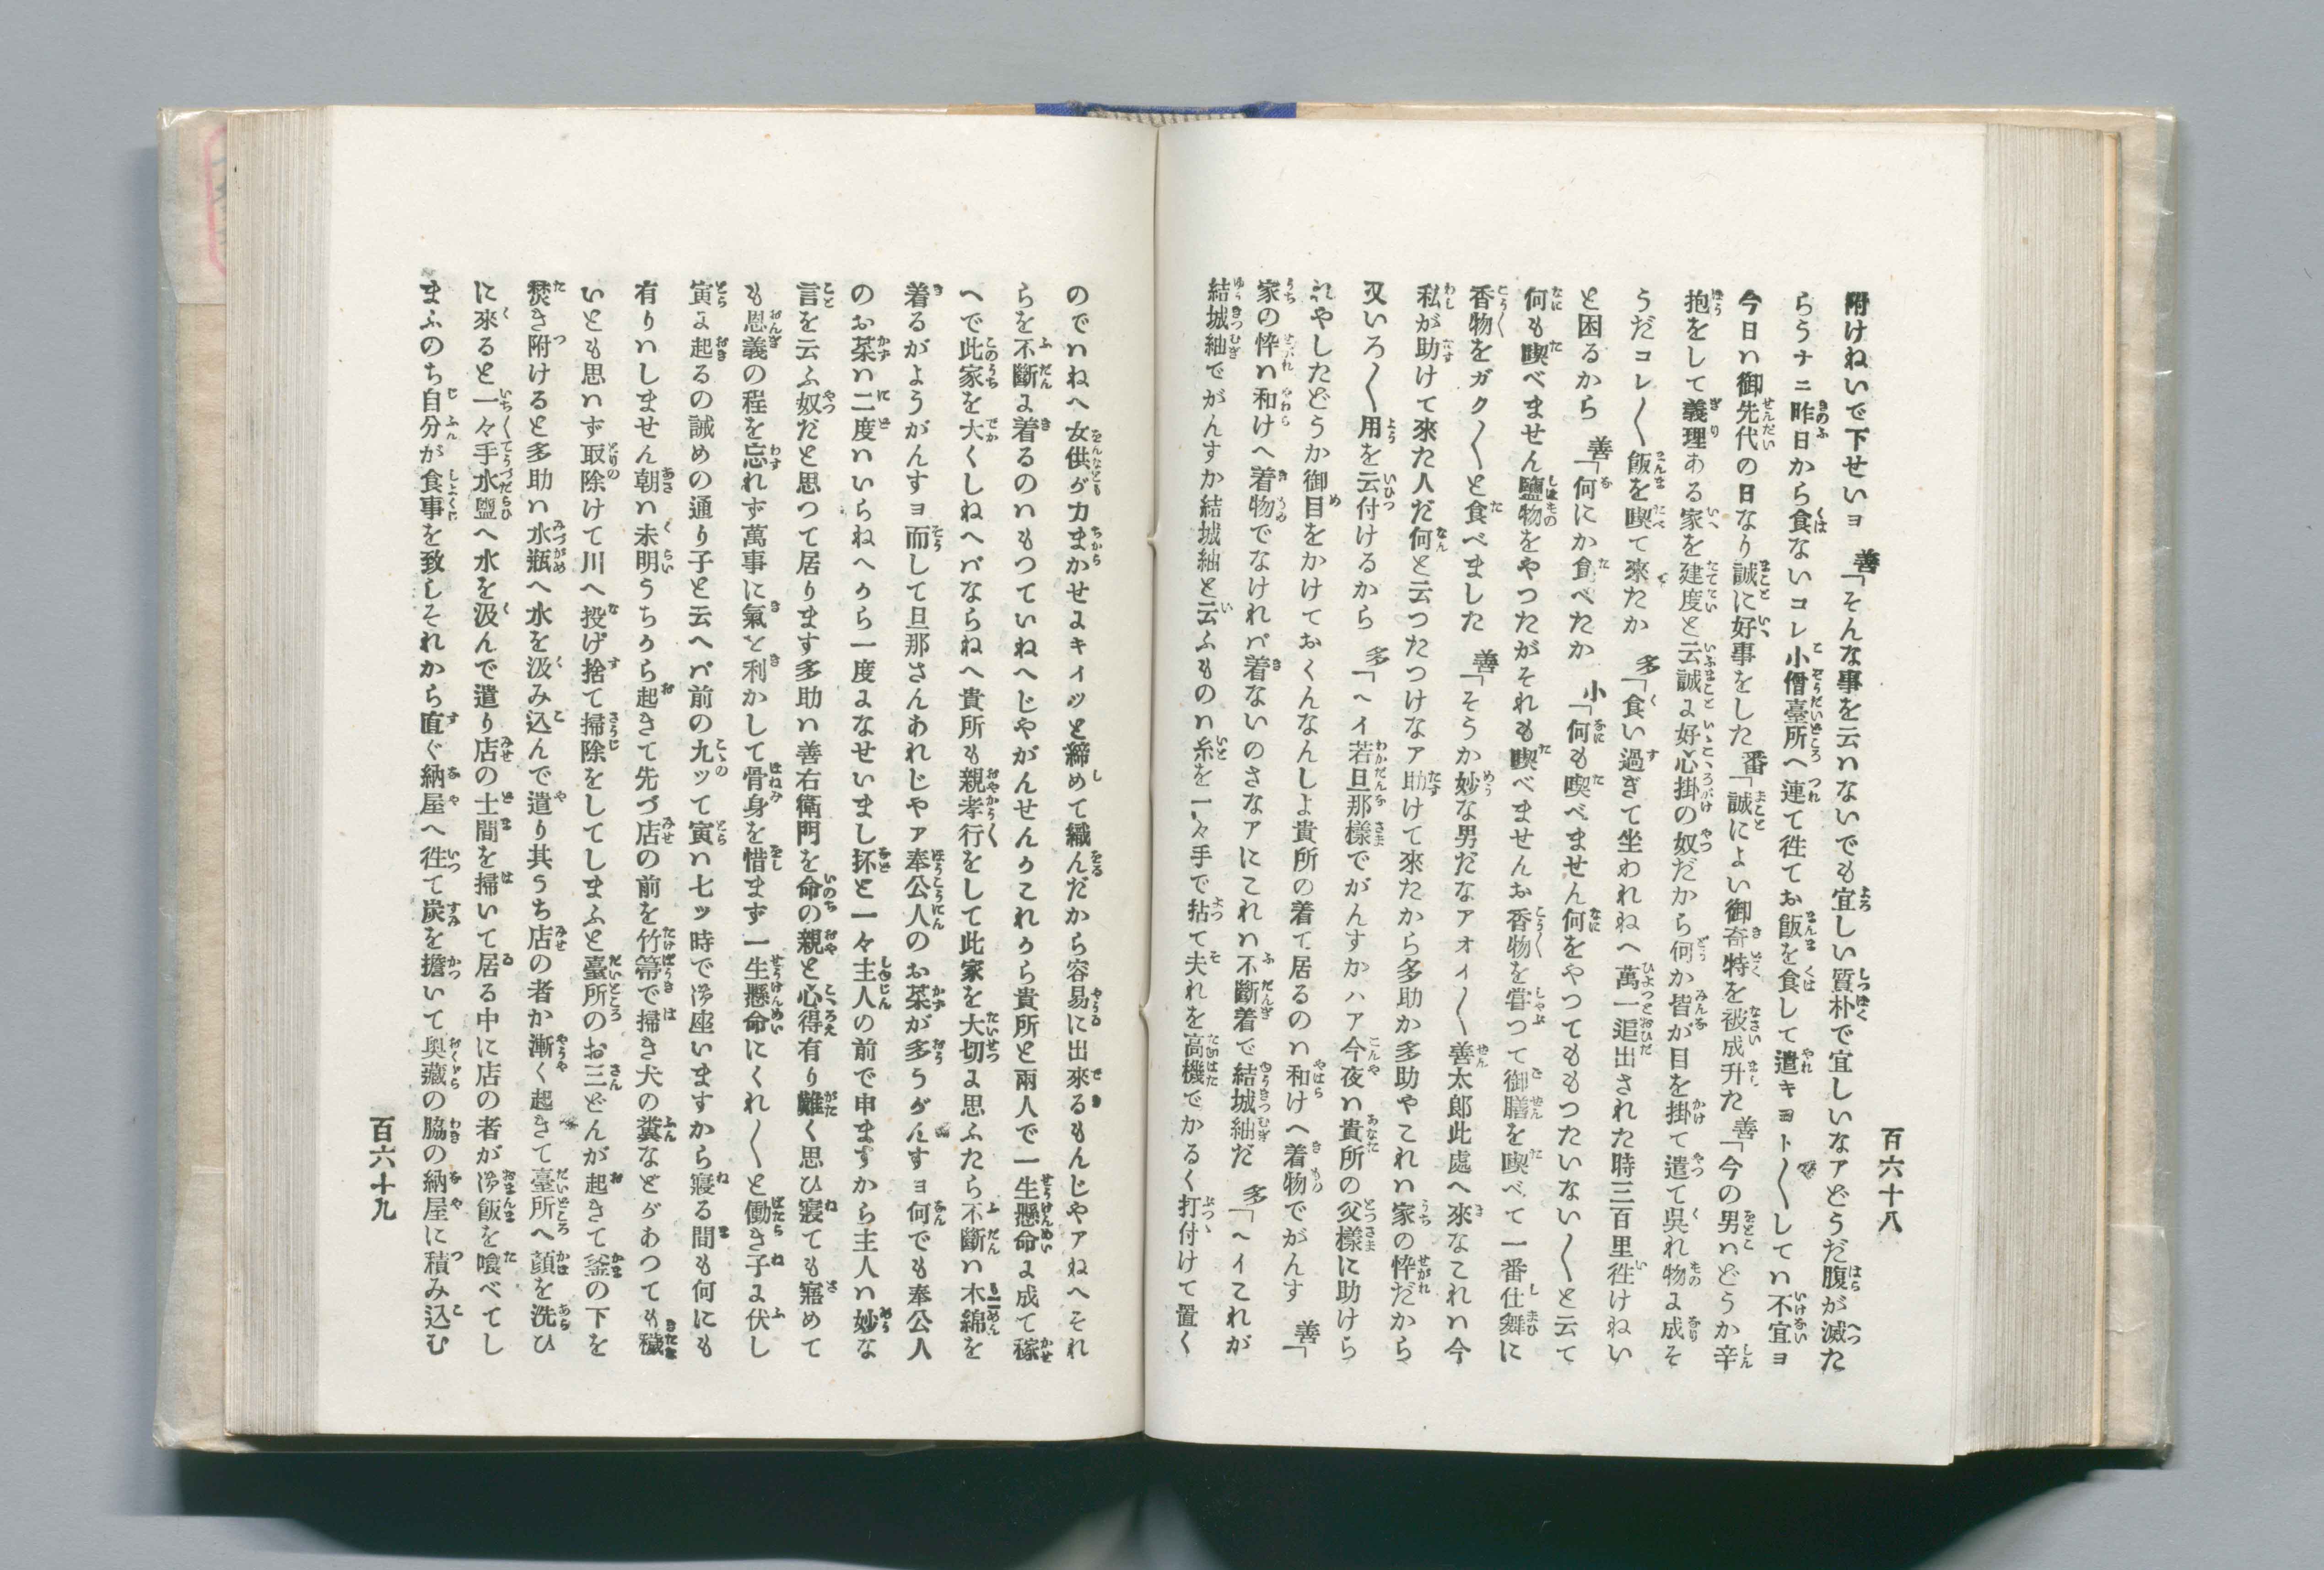 百六十八
附けねいで下せいヨ 善「そんな事を云ハないでも宜しい質朴で宜しいなアどうだ腹が減つた
らうナニ昨日から食ないコレ小僧臺所へ連て徃てお飯を食して遣れキヨト〱してハ不宜ヨ
今日ハ御先代の日なり誠に好事をした 番「誠によい御奇特を被成升た 善「今の男ハどうか辛
抱をして義理ある家を建度と云誠に好心掛の奴だから何か皆が目を掛て遣て呉れ物に成そ
うだコレ〱飯を喫て來たか 多「食い過ぎて坐われねへ萬一追出された時三百里徃けねい
と困るから 善「何にか食べたか 小「何も喫べません何をやつてももつたいない〱と云て
何も喫べません鹽物をやつたがそれも喫べませんお香物を甞つて御膳を喫べて一番仕舞に
香物をガク〱と食べました 善「そうか妙な男だなアオイ〱善太郎此處へ來なこれハ今
私が助けて來た人だ何と云つたつけなア助けて來たから多助か多助やこれハ家の悴だから
又いろ〱用を云付けるから 多「ヘイ若旦那樣でがんすかハア今夜ハ貴所の父樣に助けら
れやしたどうか御目をかけておくんなんしよ貴所の着て居るのハ和けへ着物でがんす 善「
家の悴ハ和けへ着物でなけれバ着ないのさなアにこれハ不斷着で結城紬だ 多「ヘイこれが
結城紬でがんすか結城紬と云ふものハ糸を一々手で拈て夫れを高機でかるく打付けて置く
のでハねへ女供が力まかせにキイッと締めて織んだから容易に出來るもんじやアねへそれ
らを不斷に着るのハもつていねへじやがんせんかこれから貴所と兩人で一生懸命に成て稼
へで此家を大くしねへバならねへ貴所も親孝行をして此家を大切に思ふたら不斷ハ木綿を
着るがようがんすヨ而して旦那さんあれじやア奉公人のお菜が多うがんすヨ何でも奉公人
のお菜ハ二度ハいらねへから一度になせいまし抔と一々主人の前で申ますから主人ハ妙な
言を云ふ奴だと思つて居ります多助ハ善右衛門を命の親と心得有り難く思ひ寢ても寤めて
も恩義の程を忘れず萬事に氣を利かして骨身を惜まず一生懸命にくれ〱と働き子に伏し
寅に起るの誠めの通り子と云へバ前の九ッて寅ハ七ッ時で御座いますから寢る間も何にも
有りハしません朝ハ未明うちから起きて先づ店の前を竹箒で掃き犬の糞などがあつても穢
いとも思ハず取除けて川へ投げ捨て掃除をしてしまふと臺所のお三どんが起きて釜の下を
焚き附けると多助ハ水瓶へ水を汲み込んで遣り其うち店の者か漸く起きて臺所へ顔を洗ひ
に來ると一々手水盥へ水を汲んで遣り店の土間を掃いて居る中に店の者が御飯を喰べてし
まふのち自分が食事を致しそれから直ぐ納屋へ徃て炭を擔いて奥藏の脇の納屋に積み込む
百六十九